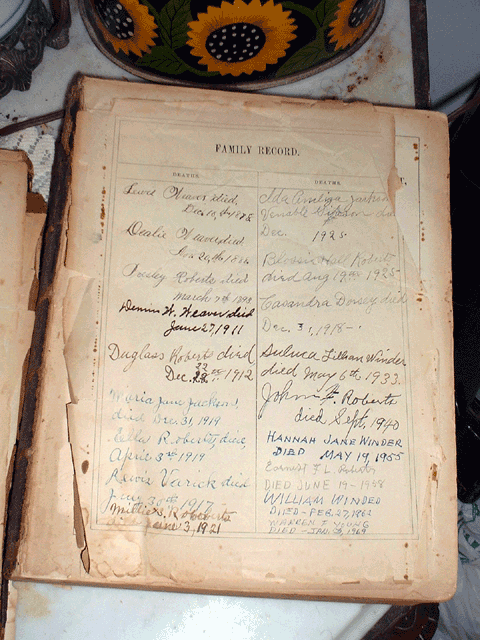 FAMILY RECORD.
DEATHS.
Lewis Weaver died,
Dealie Weaver died
Roberts died
March 7th
Dennis W. Weaver died
June 27, 1911
Duglass Roberts died
Dec. 1912
Maria Jane Jackson,
died Dec. 31, 1919
Ella Roberts, died,
April 3rd 1919
Lewis Varick died
June 30th 1917
Millie Roberts
June 3, 1921
DEATHS.
Ida
Venable
Dec. 1925
Blossie Hall Roberts
died Aug 1925
Casandra Dorsey died
Dec. 31, 1918
Lillian Winder
died May 6th, 1933.
John F. Roberts
died Sept, 1940
HANNAH JANE WINDER
DIED MAY 19, 1955
L. Roberts
DIED JUNE 19-1958
WILLIAM WINDED
DIED-FEB. 27, 1962
WARREN F YOUNG
DIED-JAN 1969